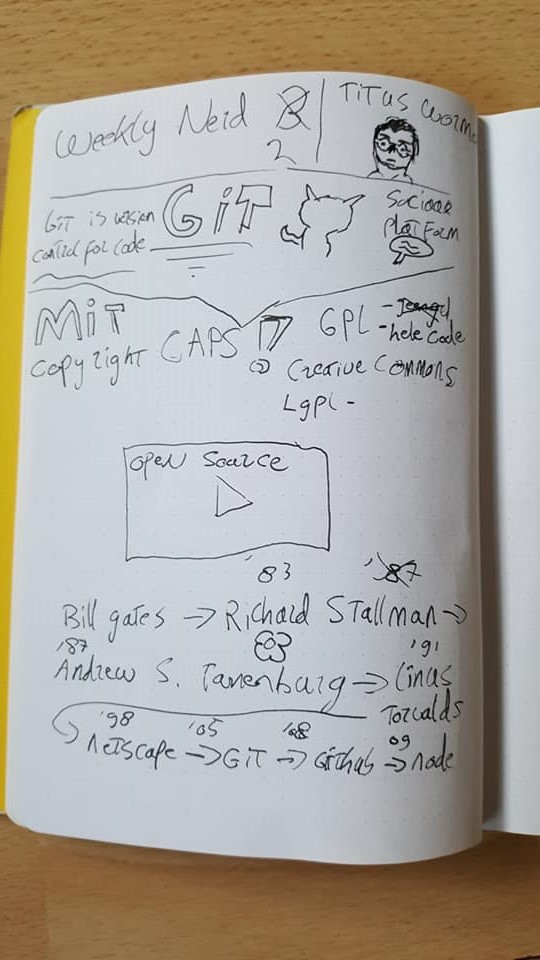 Weekly Nerd 2
Titus Worme
Git is version
control for code
GiT
Sociale
Platform
MiT
copyright
CAPS
GPL -
- hele code
Creative Commons
Lgpl -
open source
'83
'87
Bill gates → Richard Stallman →
'87
'91
Andrew S. Tanenburg → Linus
Torvalds
'98 '05 '08 09
Netscape → GiT → Github → node